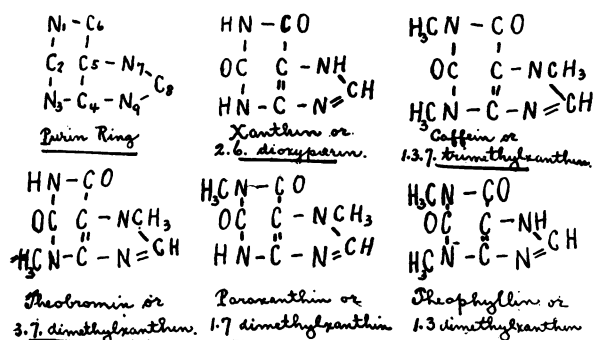 N1 – C6
C2 C5 – N7
C8
N3 – C4 – N9
Purin Ring
HN – CO
OC C – NH
CH
HN – C – N
Xanthin or
2.6. dioxypurin.
H3C N – CO
OC C – NCH3
CH
H3C N – C – N
Caffein or
1.3.7. trimethylxanthin.
HN – CO
OC C – NCH3
CH
H3C N – C – N
Theobromin or
3.7. dimethylxanthin.
H3C N – CO
OC C – NCH3
CH
HN – C – N
Paraxanthin or
1.7 dimethylxanthin
H3C N – CO
OC C – NH
CH
H3C N – C – N
Theophyllin or
1.3 dimethylxanthin